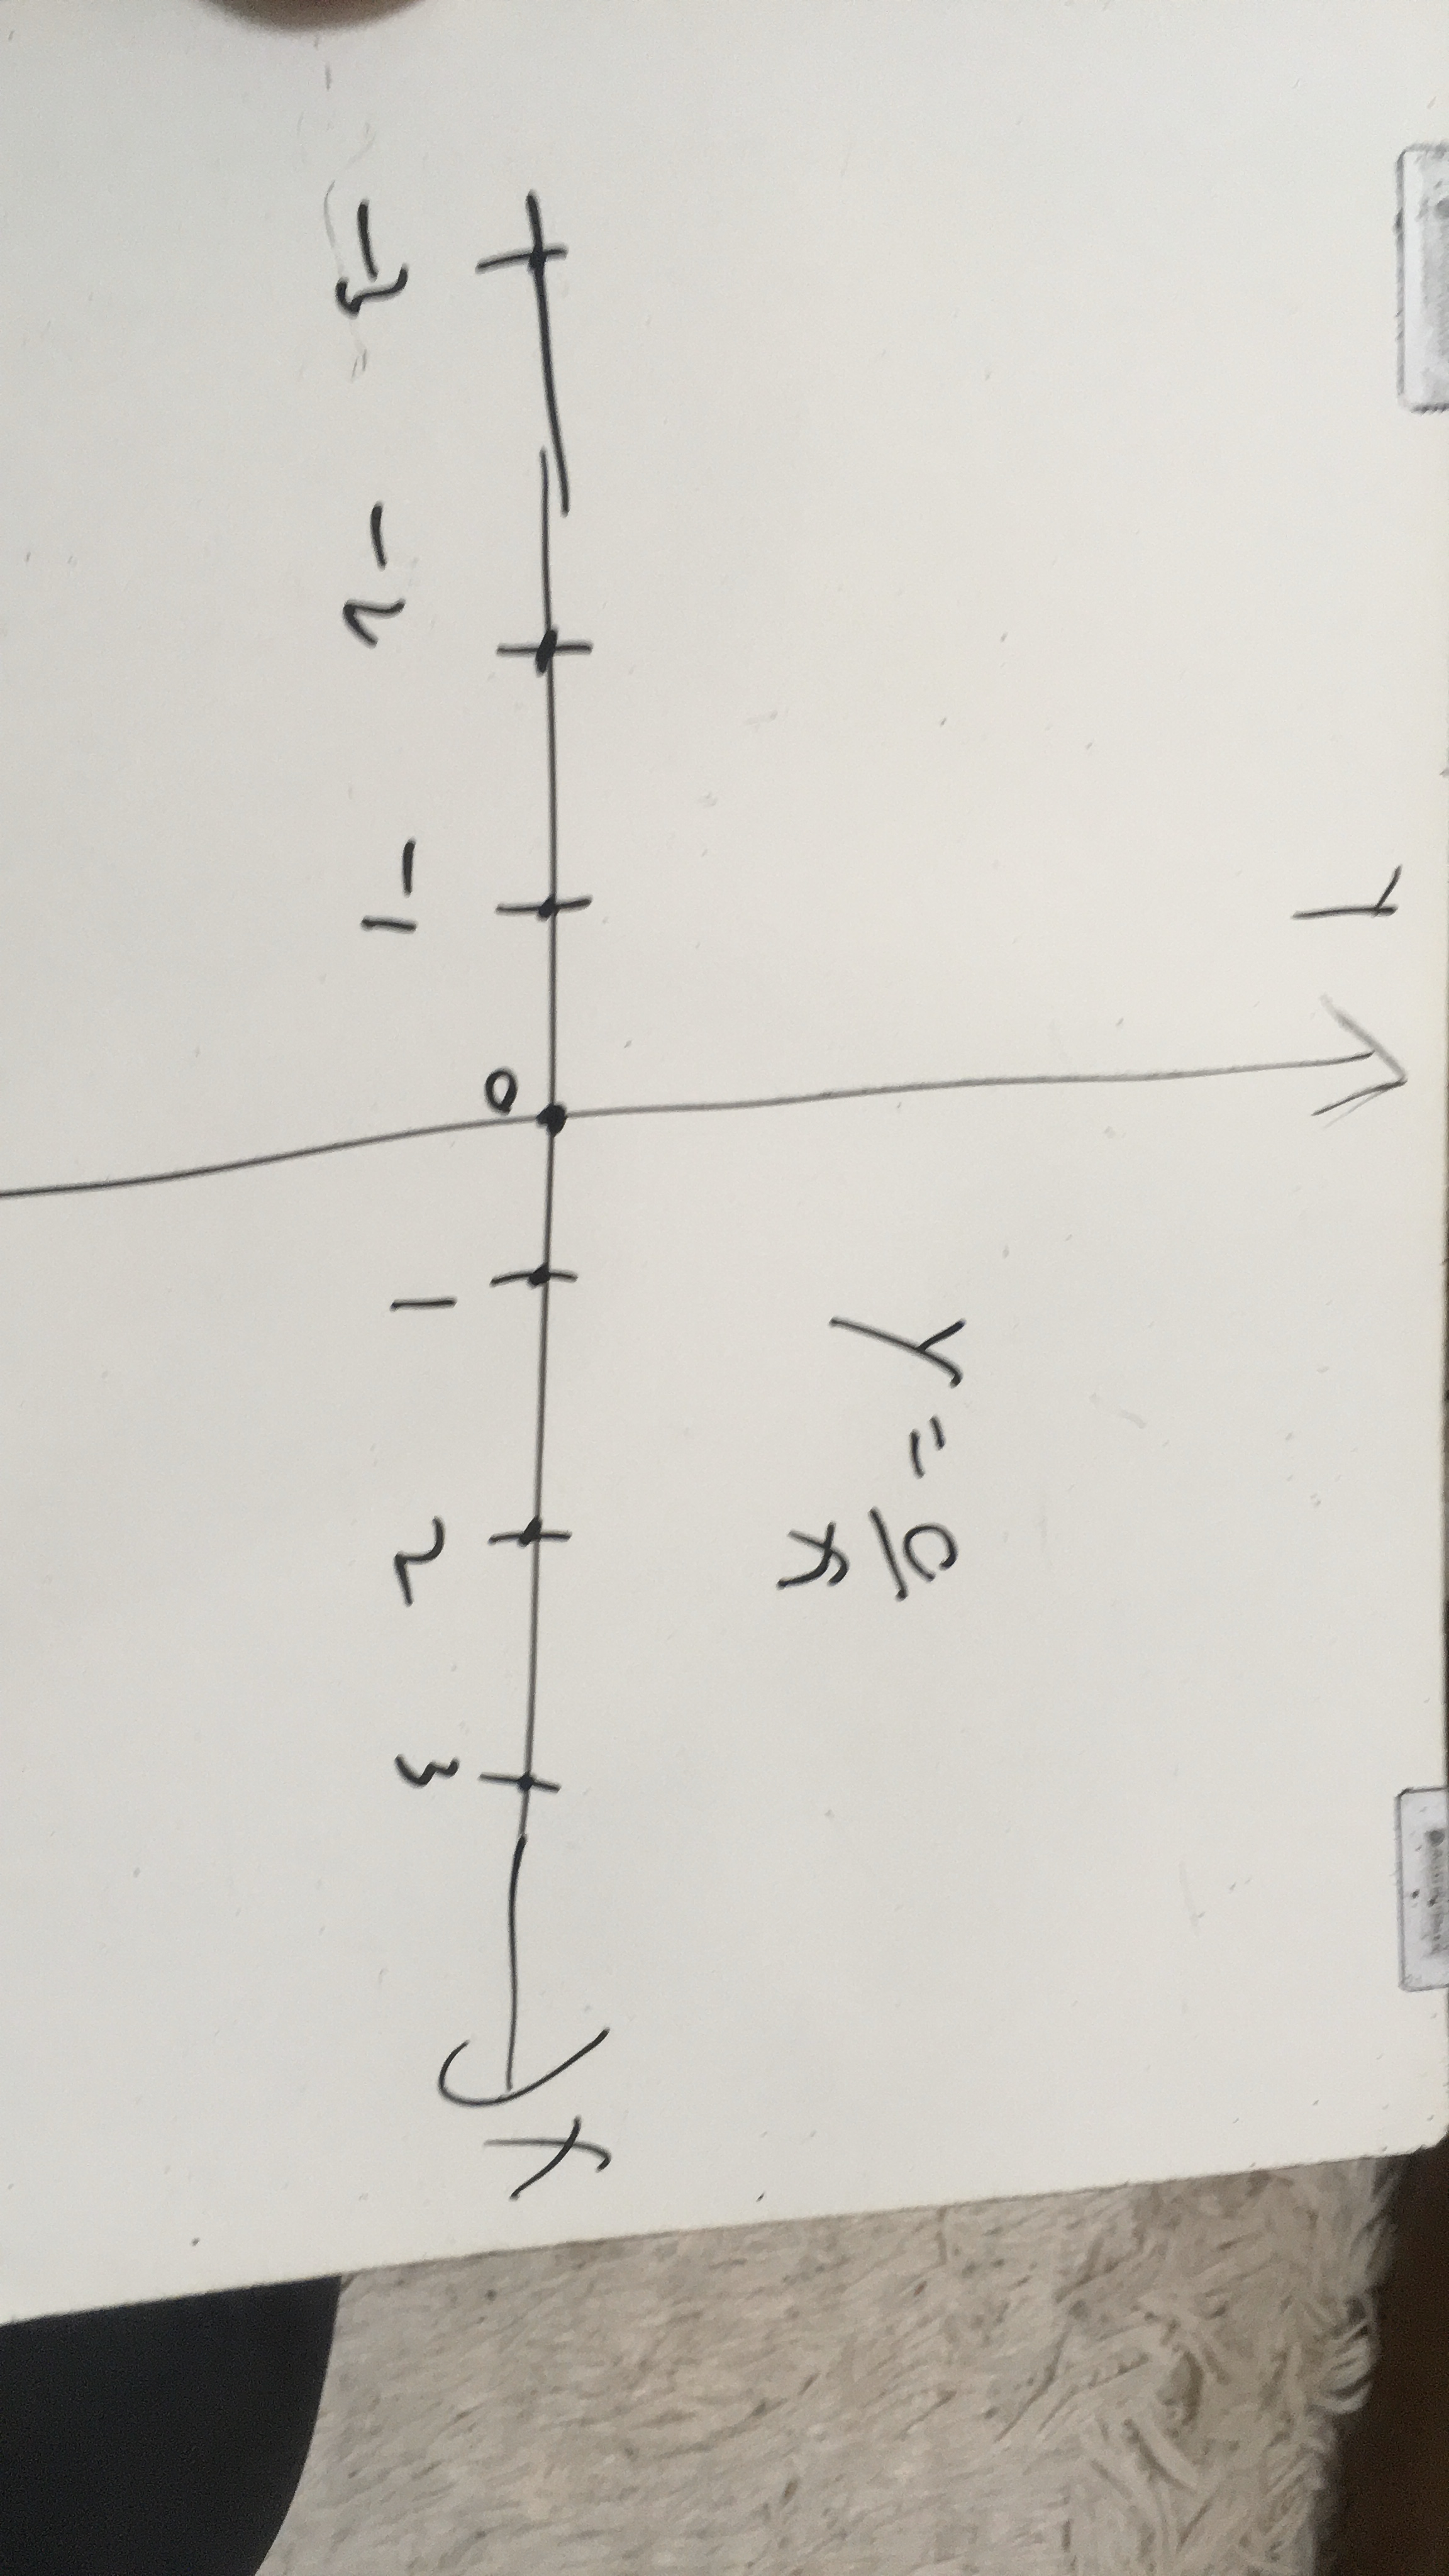 Y
y = 0/x
-3 -2 -1 0 1 2 3
X